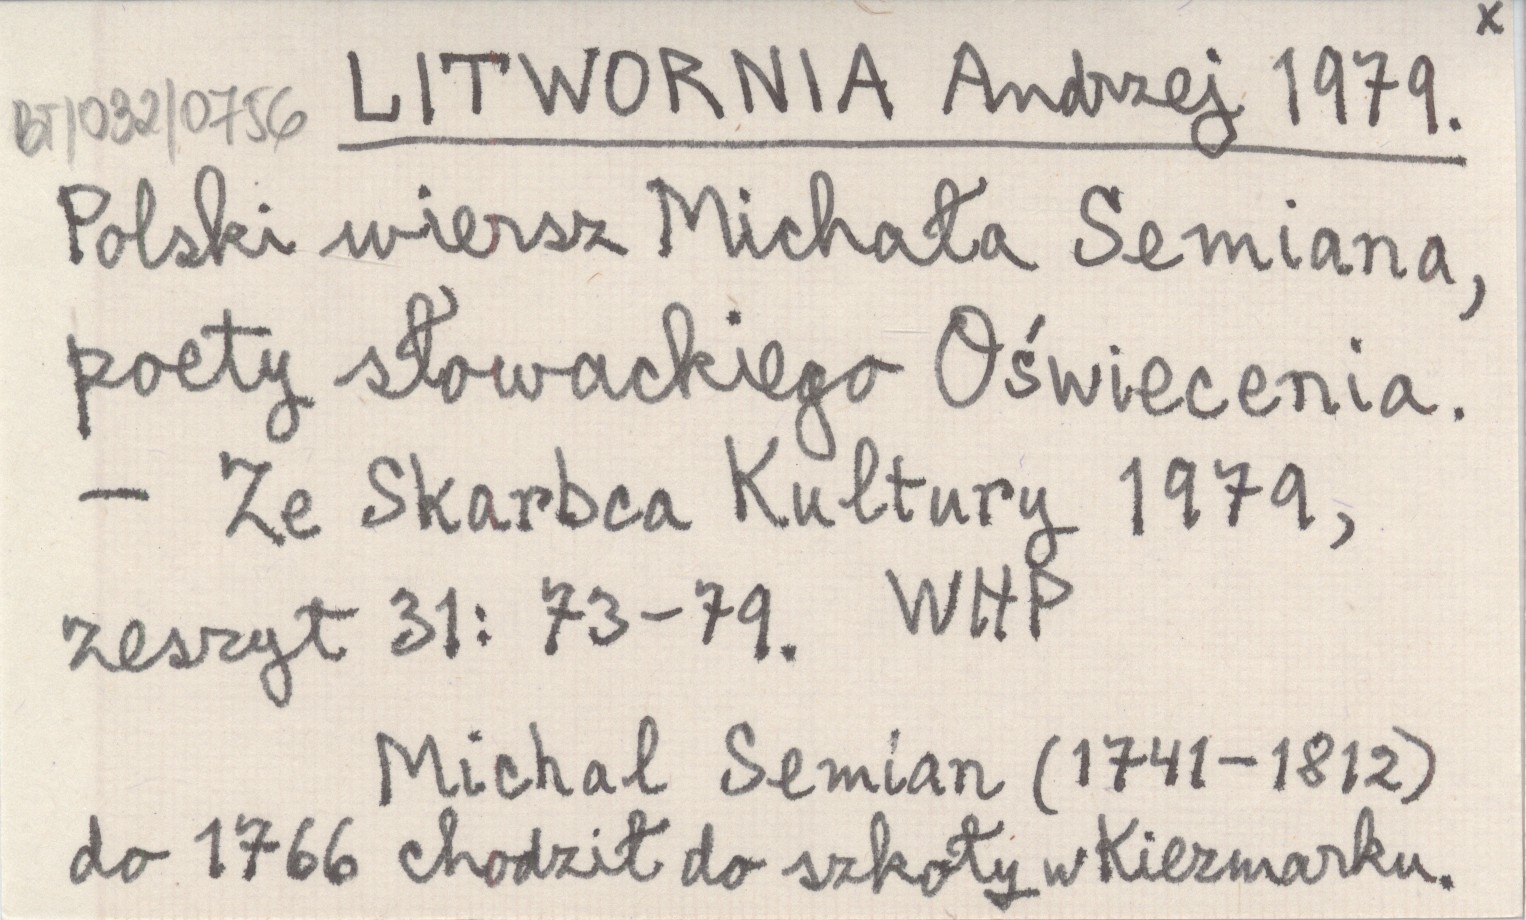 x
BT/032/0756 LITWORNIA Andrzej 1979.
Polski wiersz Michała Semiana,
poety słowackiego Oświecenia.
— Ze Skarbca Kultury 1979,
zeszyt 31: 73-79. WHP
Michal Semian (1741-1812)
do 1766 chodził do szkoły w Kiezmarku.